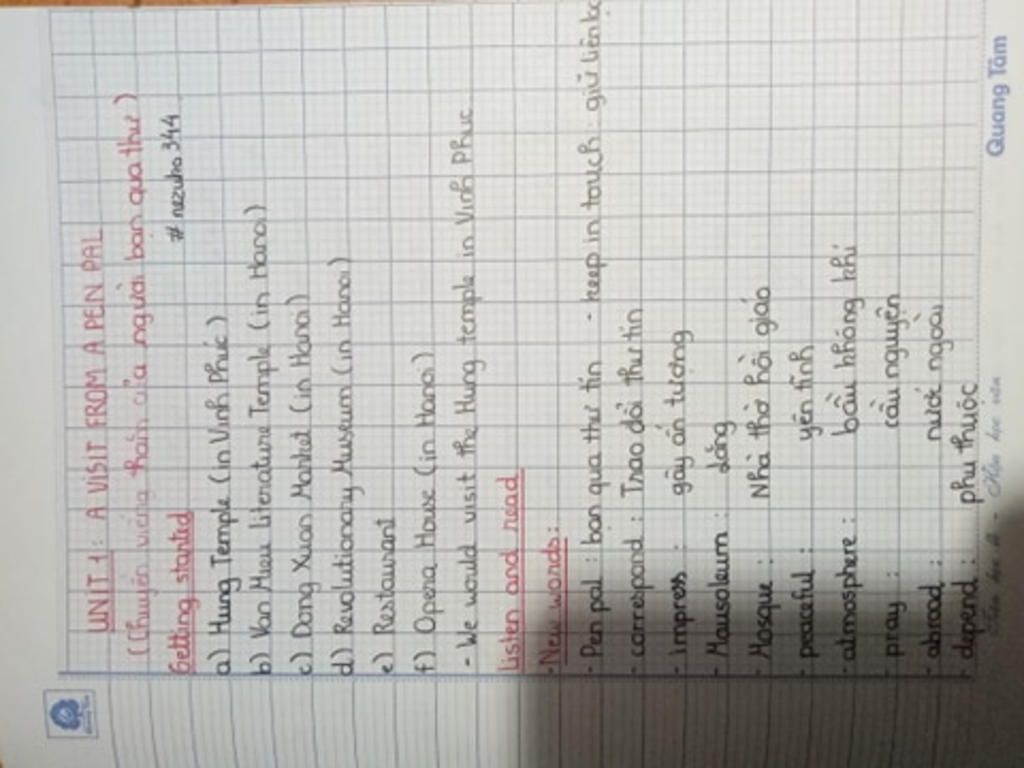 UNIT 1: A VISIT FROM A PEN PAL
(Chuyến viếng thăm của người bạn qua thư)
# nezuko344
Getting started
a) Hung Temple (in Vinh Phúc)
b) Van Mieu Literature Temple (in Hanoi)
c) Dong Xuan Market (in Hanoi)
d) Revolutionary Museum (in Hanoi)
e) Restaurant
f) Opera House (in Hanoi)
- We would visit the Hung temple in Vinh Phuc
Listen and read
- New words:
- Pen pal: bạn qua thư tín - keep in touch: giữ liên
- correspond: Trao đổi thư tín
- Impress: gây ấn tượng
- Mausoleum: lăng
- Mosque: Nhà thờ hồi giáo
- peaceful: yên tĩnh
- atmosphere: bầu không khí
- pray: cầu nguyện
- abroad: nước ngoài
- depend: phụ thuộc
Quang Tâm